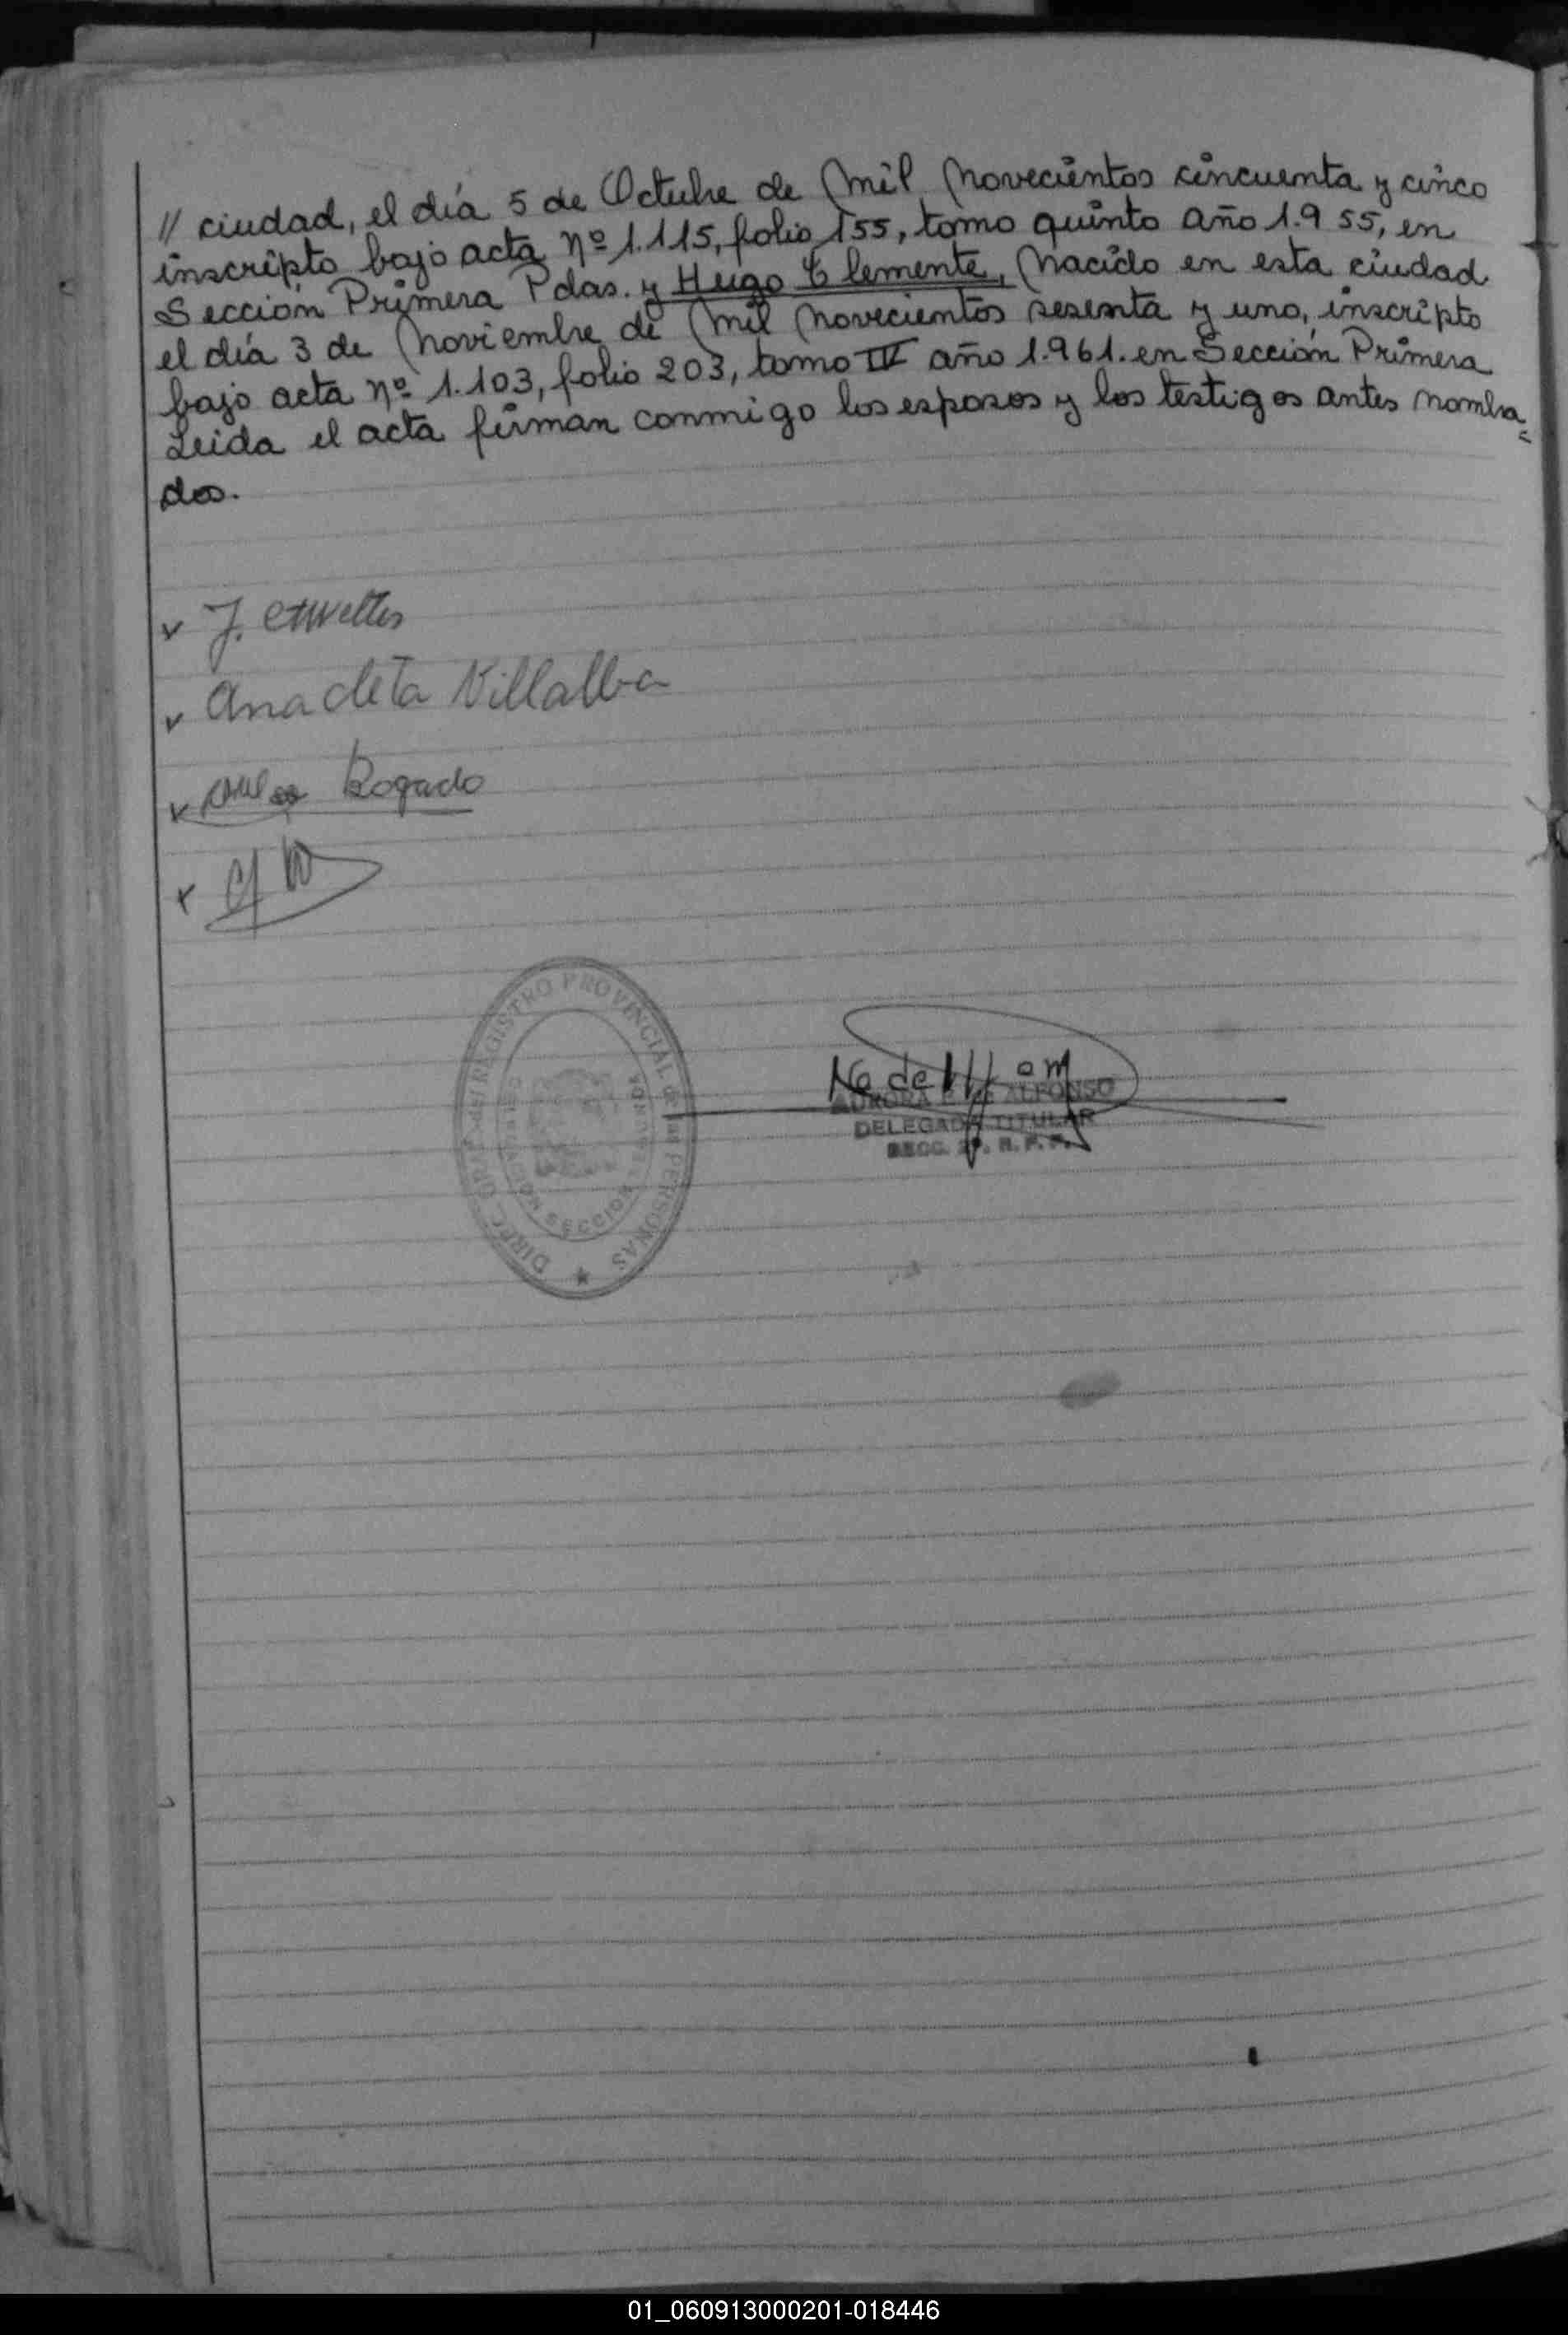 // ciudad, el día 5 de Octubre de Mil Novecientos cincuenta y cinco
inscripto bajo acta nº 1.115, folio 155, tomo quinto año 1.955, en
Sección Primera Pdas. y Hugo Clemente, Nacido en esta ciudad
el día 3 de Noviembre de Mil Novecientos sesenta y uno, inscripto
bajo acta nº 1.103, folio 203, tomo IV año 1.961. en Sección Primera
Leida el acta firman conmigo los esposos y los testigos antes nombra=
dos.
J.
Anacleta Villalba
Rogado
DIREC. GRAL. del REGISTRO PROVINCIAL de las PERSONAS
SECCION SEGUNDA
AURORA ALFONSO
DELEGADA TITULAR
SECC. 2ª. R. P. P.
01_060913000201-018446